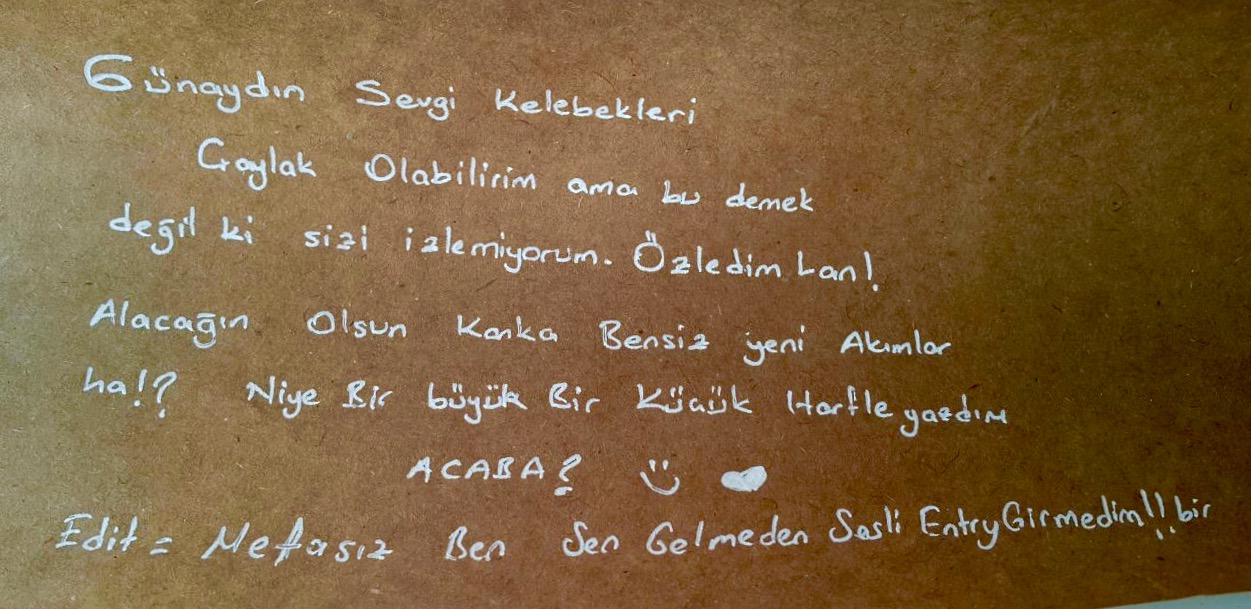 Günaydın Sevgi Kelebekleri
Çaylak Olabilirim ama bu demek
değil ki sizi izlemiyorum. Özledim Lan!
Alacağın Olsun Kanka Bensiz yeni Akımlar
ha!? Niye Bir büyük Bir Küçük Harfle yazdım
ACABA? :) ♥
Edit = Mefasız Ben Sen Gelmeden Sesli Entry Girmedim!! bir